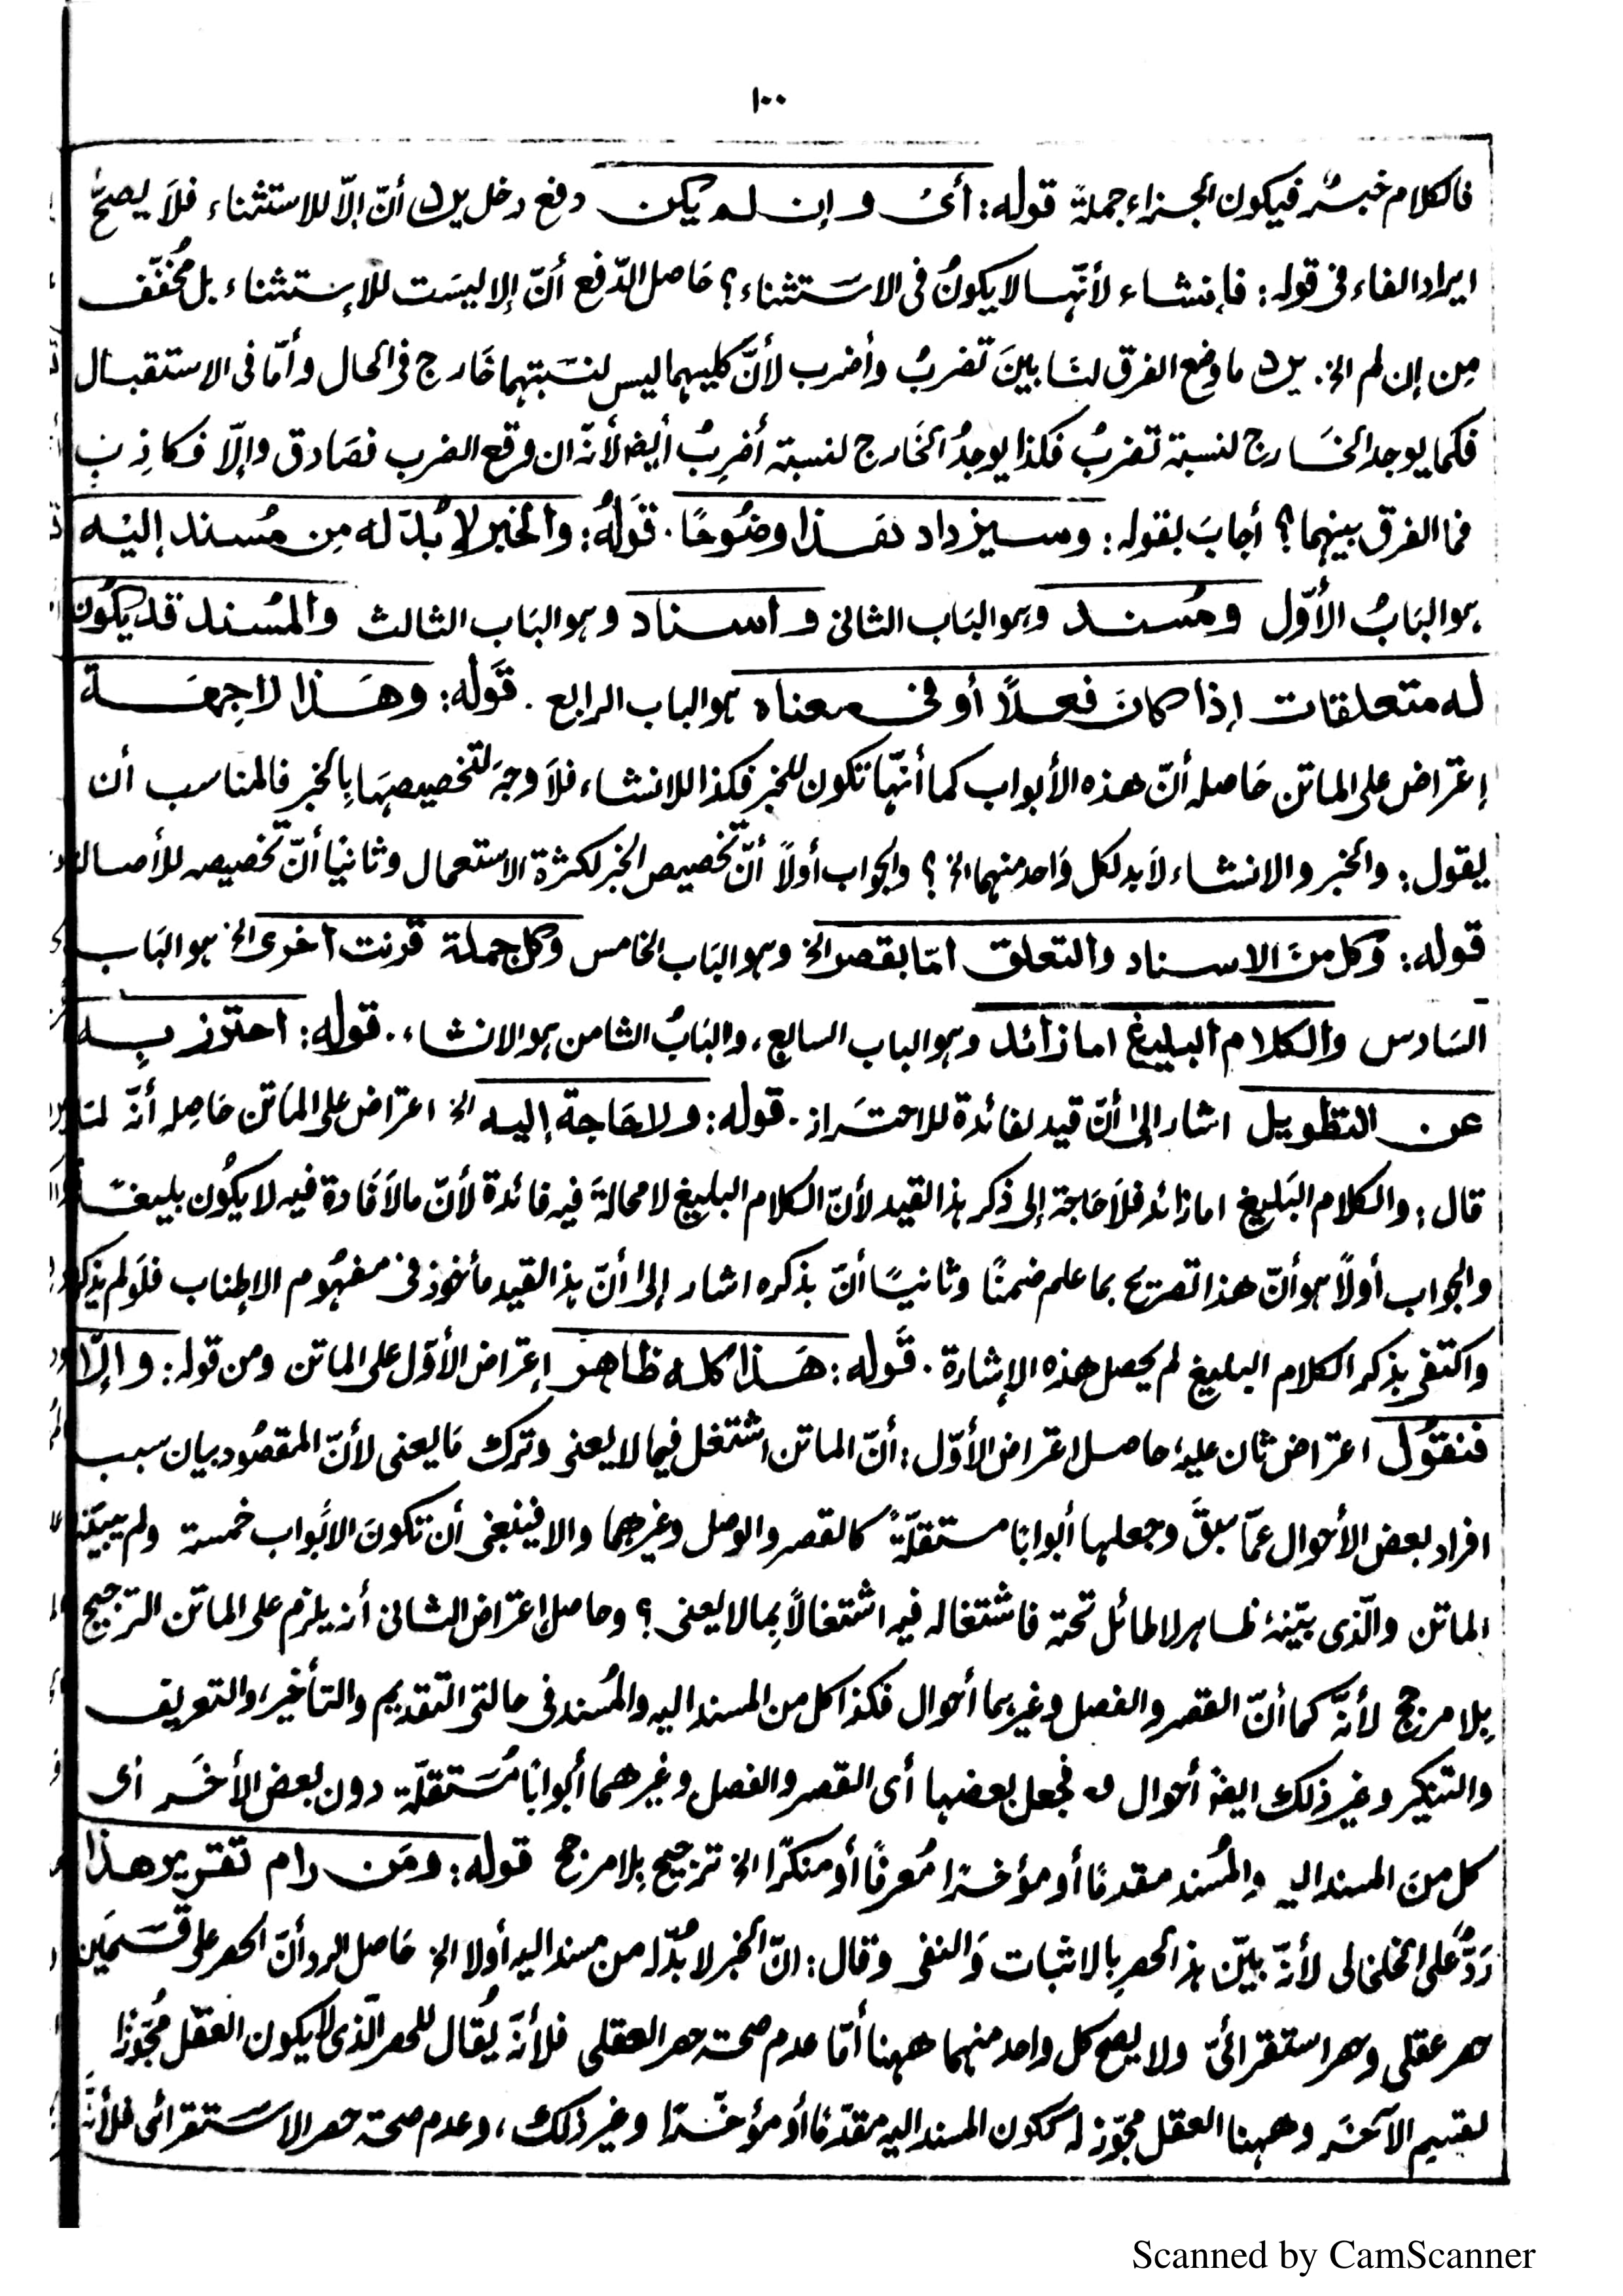 ١٠٠
فالكلام خبر فيكون الجزاء جملةً قوله: أى وإن لم يكن دفع دخل يرد أنّ إلّا للاستثناء فلَا يصحُّ
ايراد الفاء فى قوله: فإنشاء لأنّها لا يكونُ فى الاسَتثناء؟ حَاصل الدّفع أنّ إلا ليسَت للإستثناء بل مُخفّف
مِن إن لم الخ. يرد ما وضع الفرق لنَا بينَ تضربُ وأضرب لأنَّ كليهما ليس لنسَبتهما خَارج فى الحال وأمّا فى الاستقبال
فكما يوجد الخَارج لنسبة تضربُ فكذا يوجدُ الخَارج لنسبة أضرِبُ أيضا لأنّه ان وقع الضرب فصَادق وإلّا فكاذِب
فما الفرق بينهما؟ أجابَ بقوله: وسيزداد هَذا وضُوحًا. قَولهُ: والخبر لا بُدّ له مِن مُسند إليْه
هو البَابُ الأوّل ومُسند وهو البَاب الثانى واسناد وهو البَاب الثالث والمُسند قد يكُون
له متعلقات إذا كانَ فعلًا أو فى معناه هو الباب الرابع. قَوله: وهَذا لا جِهَة
إعتراض على الماتن حَاصله أنّ هذه الأبواب كما أنهّا تكون للخبر فكذا للانشاء فلاَ وجهَ لتخصيصهَا بِالخبر فالمناسب أن
يقول: والخبر والانشاء لاَبد لكل وَاحد منهما الخ؟ والجواب أولاً أنّ تخصيص الخبر لكثرة الاستعمال وثانيا أنّ تخصيصه للأصالة
قوله: وَكل منَ الاسناد والتعلق امّا بقصر الخ وهو البَاب الخامس وكل جملة قرنت أخرى الخ هو البَاب
السَادس والكلام البليغ اما زائد وهو الباب السابع، والبَابُ الثامن هو الانشاء. قوله: احترز بِه
عن التطويل اشار إلىٰ أنّ قيد لفائدة للاحتراز. قوله: ولا حَاجة إليه الخ اعتراض على المَاتن حَاصله أنّه لمّا
قال: والكلام البَليغ اما زائد فلاَ حَاجة إلى ذكر هذا القيد لأنّ الكلام البليغ لا محالةَ فيه فائدة لأنّ مالاَ فَادة فيه لا يكُون بليغًا
والجواب أولاً هو أنّ هذا تصريح بما علم ضمنًا وثانيًا أنّ بذكره اشار إلىٰ أنّ هذا القيد مأخوذ فى مفهُوم الإطناب فلَو لم يذكر
واكتفى بذكر الكلام البليغ لم يحصل هذه الإشارة. قَوله: هَذا كله ظاهر إعتراض الأوّل على الماتن ومن قوله: وإلّا
فنقوُل اعتراض ثان عليهِ حاصل اعتراض الأوّل: أنّ الماتن اشتغل فيما لا يعنى وترك مَا يعنى لأنّ المقصُود بيان سبب
افراد بعض الأحوال عمّا سبقَ وجعلها أبوابًا مستقلّةً كالقصر والوصل وغيرهما والا فينبغى أن تكونَ الأبواب خمسة ولم يبيّنه
الماتن والّذى بيّنهُ ظاهر لا طائل تحته فاشتغاله فيه اشتغالًا بِما لا يعنى؟ وحاصل إعتراض الثانى أنه يلزم على الماتن الترجيح
بِلا مرجح لأنَّه كما أنّ القصر والفصل وغيرهما أحوال فكذا كل من المسند اليه والمُسند فى حالتى التقديم والتأخير، والتعريف
والتنكير وغير ذلك ايضا أحوال فجعل بعضها أى القصر والفصل وغيرهما أبوابًا مُسَتقلّة دون بعض الأخَر أى
كل منَ المسند اليه والمُسند مقدمًا أو مؤخرًا مُعرفًا أو منكرّا الخ ترجيح بِلا مرجح قوله: ومَن رام تقرير هذا
رَدٌّ على الخلخالى لأنّه بيّن هذا الحصر بِالاثبات وَالنفى وقال: انّ الخبر لا بُدّ له من مسند اليه أولا الخ حَاصل الرد أنّ الحصر على قسَمَين
حصر عقلى وحصر استقرائىّ ولا يصح كل واحد منهما ههنا أمّا عدم صحة حصر العقلى فلأنّه يُقال للحصر الّذى لا يكون العقل مُجوّزًا
لقسيم الآخَر وههنا العقل مجوّز له ككون المسند اليه مقدّمًا أو مؤخّرًا وغير ذلك، وعدم صحة حصر الاسَتقرائى فلأنّه
Scanned by CamScanner